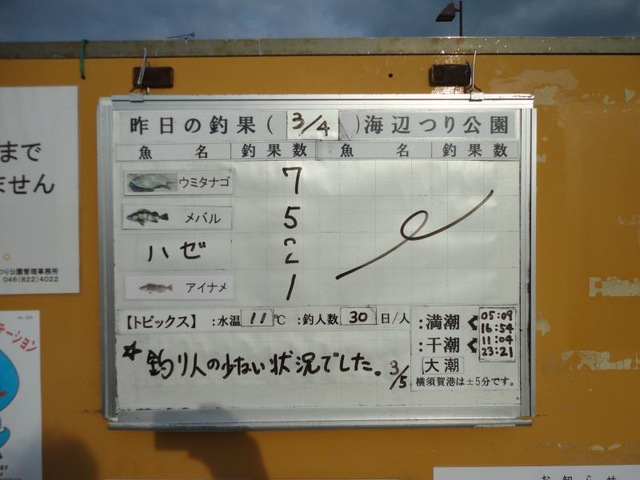 まで
ません
つり公園管理事務所
046(822)4022
昨日の釣果( 3/4 )海辺つり公園
魚名 釣果数 魚名 釣果数
ウミタナゴ 7
メバル 5
ハゼ 2
アイナメ 1
【トピックス】:水温 11℃ :釣人数 30 日/人
*釣り人の少ない状況でした。3/5
:満潮 05:09 16:54
:干潮 11:04 23:21
大潮
横須賀港は±5分です。
お知らせ